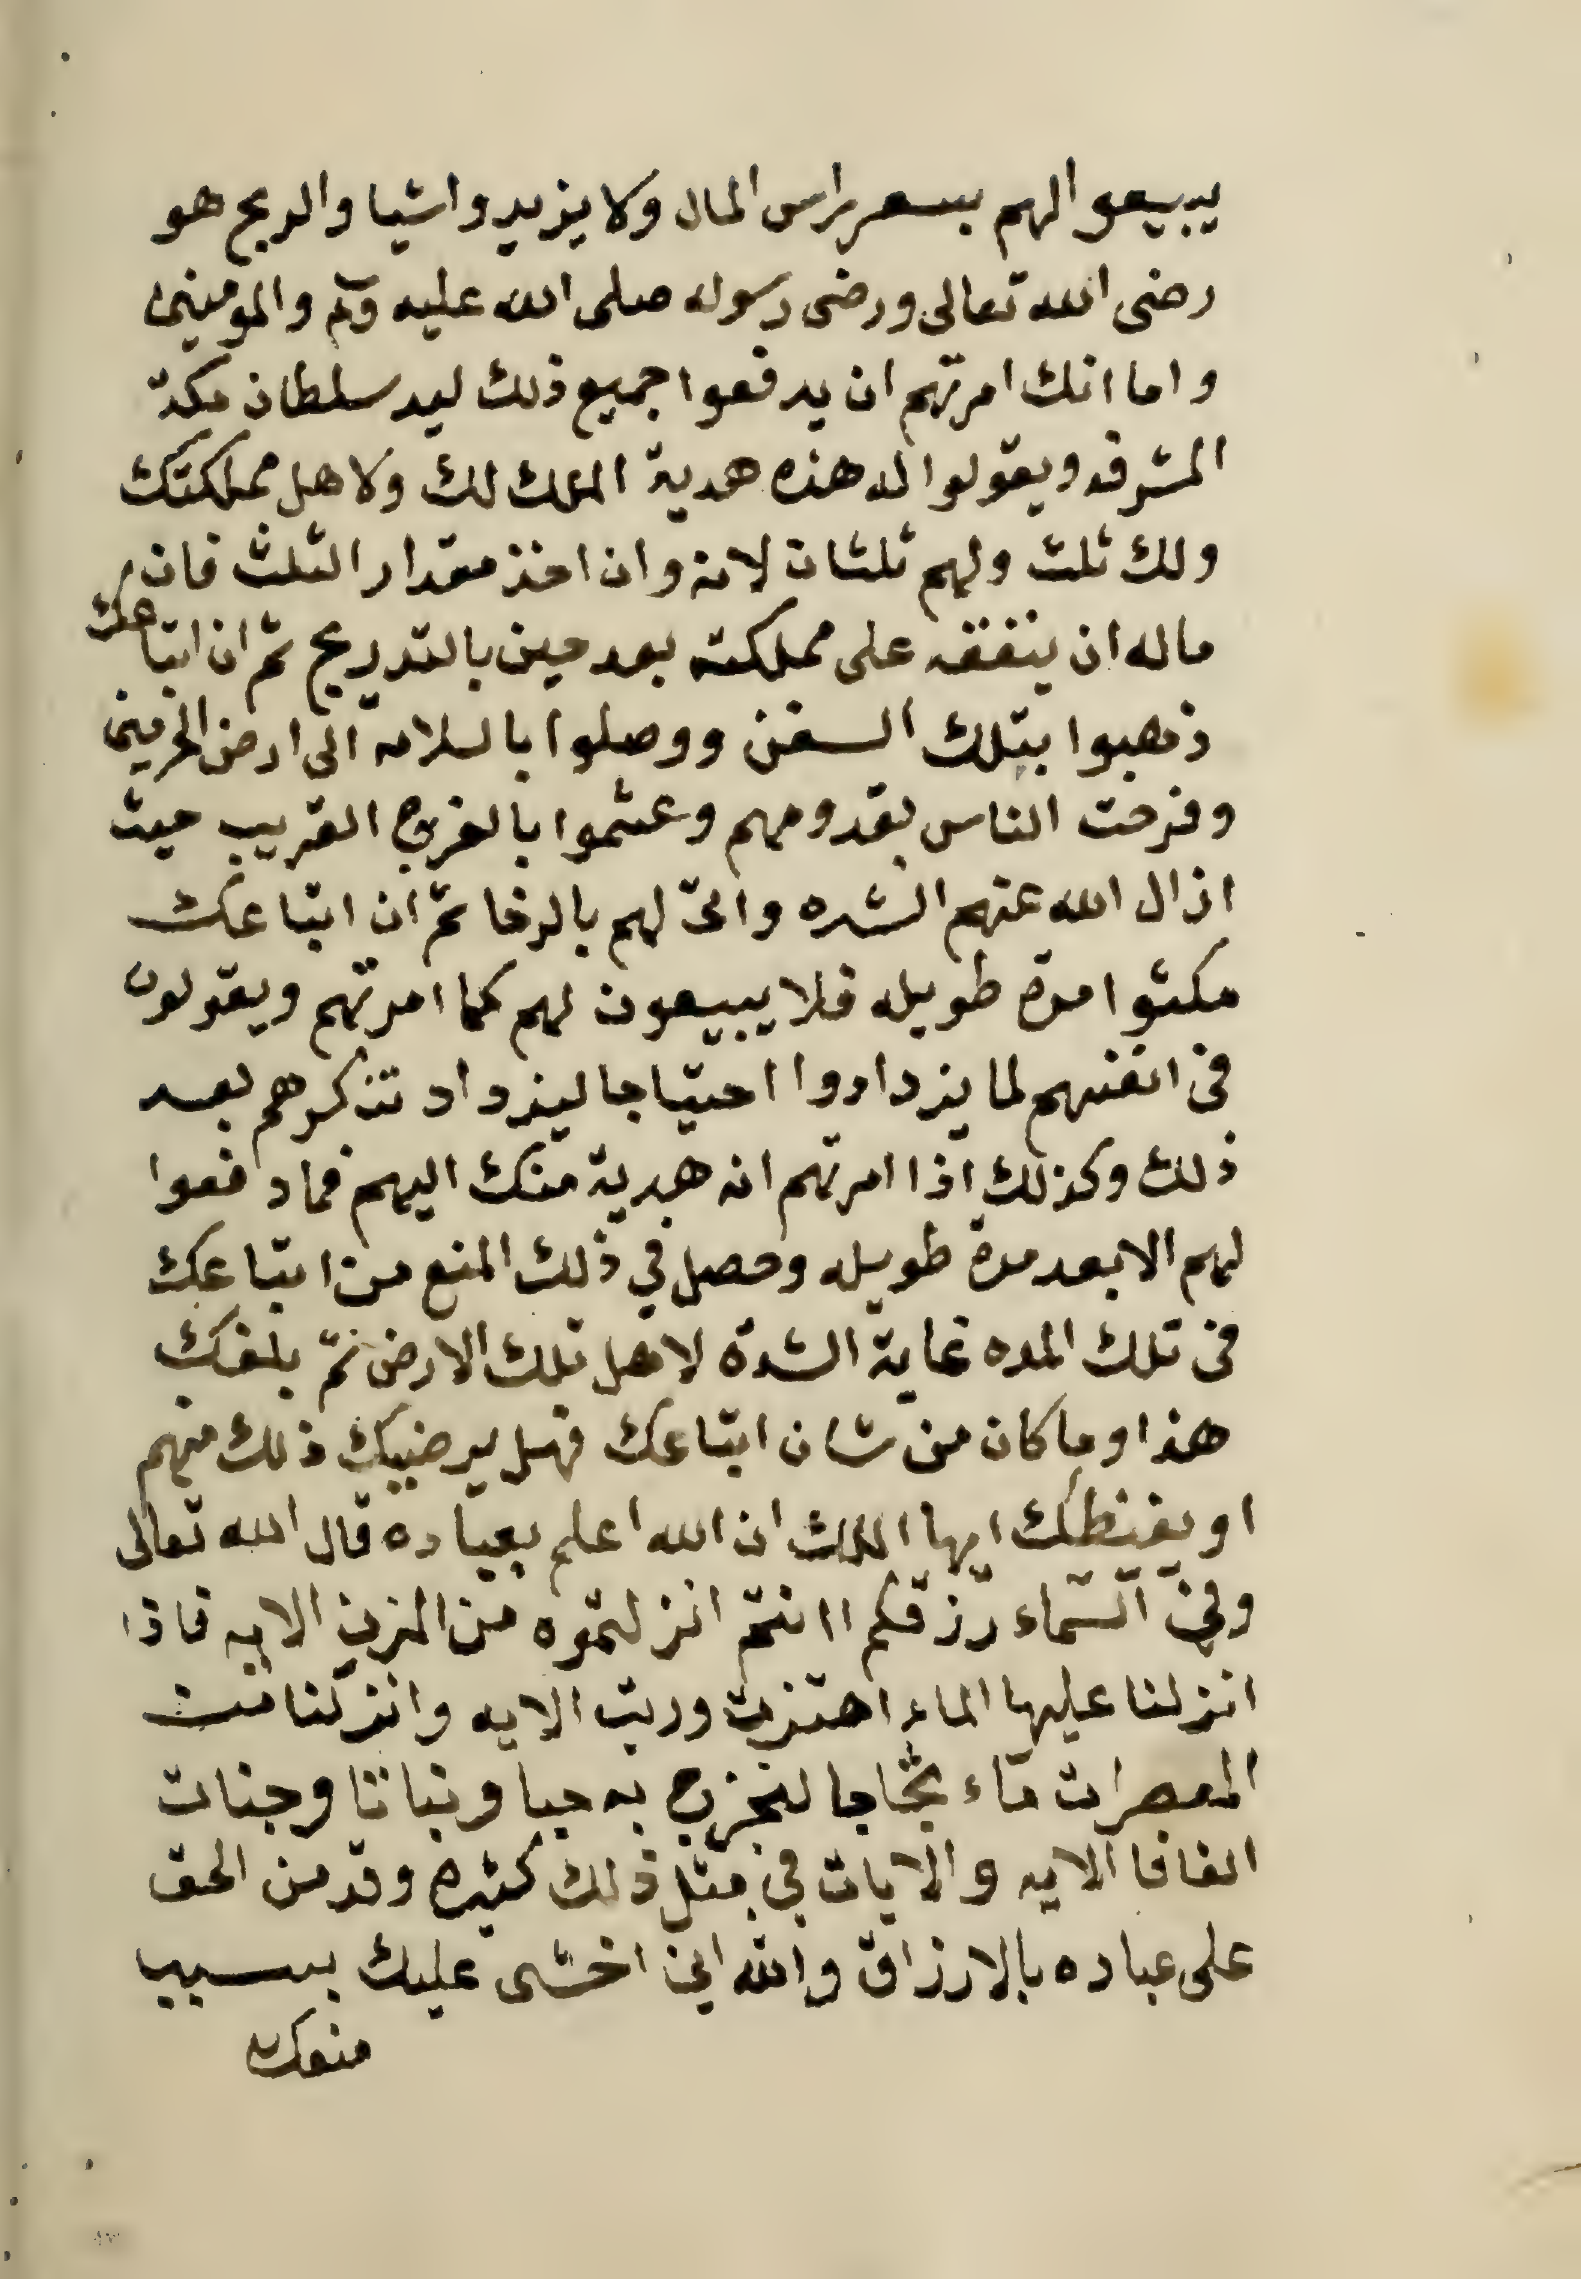 يبيعوا لهم بسعر براس المال ولا يزيدوا شيا والربح هو
رضى الله تعالى ورضى رسوله صلى الله عليه وسلم والمومنين
واما انك امرتهم ان يدفعوا جميع ذلك ليد سلطان مكة
المشرفه ويقولوا له هذه هدية الملك لك ولاهل مملكتك
ولك ثلث ولهم ثلثان لانه وان اخذ مقدار الثلث فان
ماله ان ينفقه على مملكته بعد حين بالتدريج ثم ان اتباعك
ذهبوا بتلك السفن ووصلوا بالسلامه الى ارض الحرمين
وفرحت الناس بقدومهم وعشموا بالفرج القريب حيث
ازال الله عنهم الشده واتى لهم بالرخا ثم ان اتباعك
مكثوا مدة طويله فلا يبيعون لهم كما امرتهم ويقولون
فى انفسهم لما يزدادوا احتياجا ليزداد تذكرهم بعد
ذلك وكذلك اذا امرتهم انه هدية منك اليهم فما دفعوا
لهم الا بعد مدة طويله وحصل في ذلك المنع من اتباعك
فى تلك المده غاية الشدة لاهل تلك الارض ثم بلغك
هذا وما كان من شان اتباعك فهل يرضيك ذلك منهم
او يغيظك ايها الملك ان الله اعلم بعباده قال الله تعالى
وفي السماء رزقكم اانتم انزلتموه من المزن الايه فاذا
انزلنا عليها الماء اهتزت وربت الايه وانزلنا من
المعصرات ماء ثجاجا لنخرج به حبا ونباتا وجنات
الفافا الايه والايات في مثل ذلك كثيره وقد من الحق
على عباده بالارزاق والله اني اخشى عليك بسبب
منعك